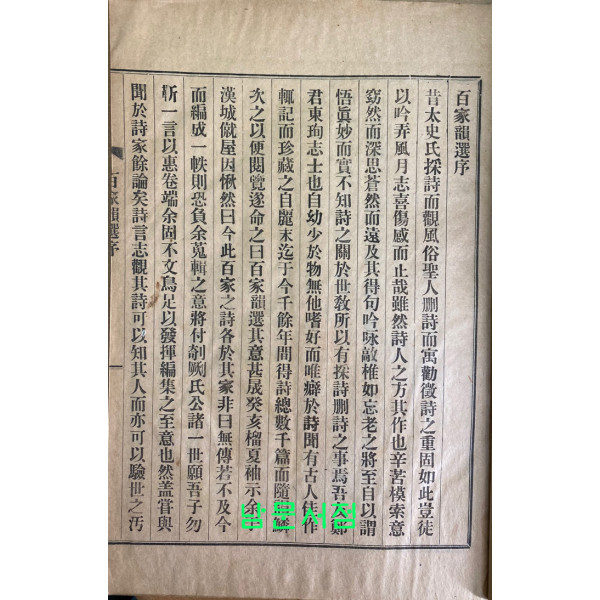 百家韻選序
昔太史氏採詩而觀風俗聖人刪詩而寓勸徵詩之重固如此豈徒
以吟弄風月志喜傷感而止哉雖然詩人之方其作也辛苦模索意
窈然而深思蒼然而遠及其得句吟咏敲椎如忘老之將至自以謂
悟眞妙而實不知詩之關於世敎所以有採詩刪詩之事焉吾 鄭
君東珣志士也自幼少於物無他嗜好而唯癖於詩聞有古人佳作
輒記而珍藏之自麗末迄于今千餘年間得詩總數千篇而隨 鱗
次之以便閱覽遂命之曰百家韻選其意甚晟癸亥榴夏袖示余
漢城僦屋因愀然曰今此百家之詩各於其家非曰無傳若不及今
而編成一帙則恐負余蒐輯之意將付剞劂氏公諸一世願吾子勿
靳一言以惠卷端余固不文烏足以發揮編集之至意也然盖嘗與
聞於詩家餘論矣詩言志觀其詩可以知其人而亦可以驗世之汚
百家韻選序
밤문서점